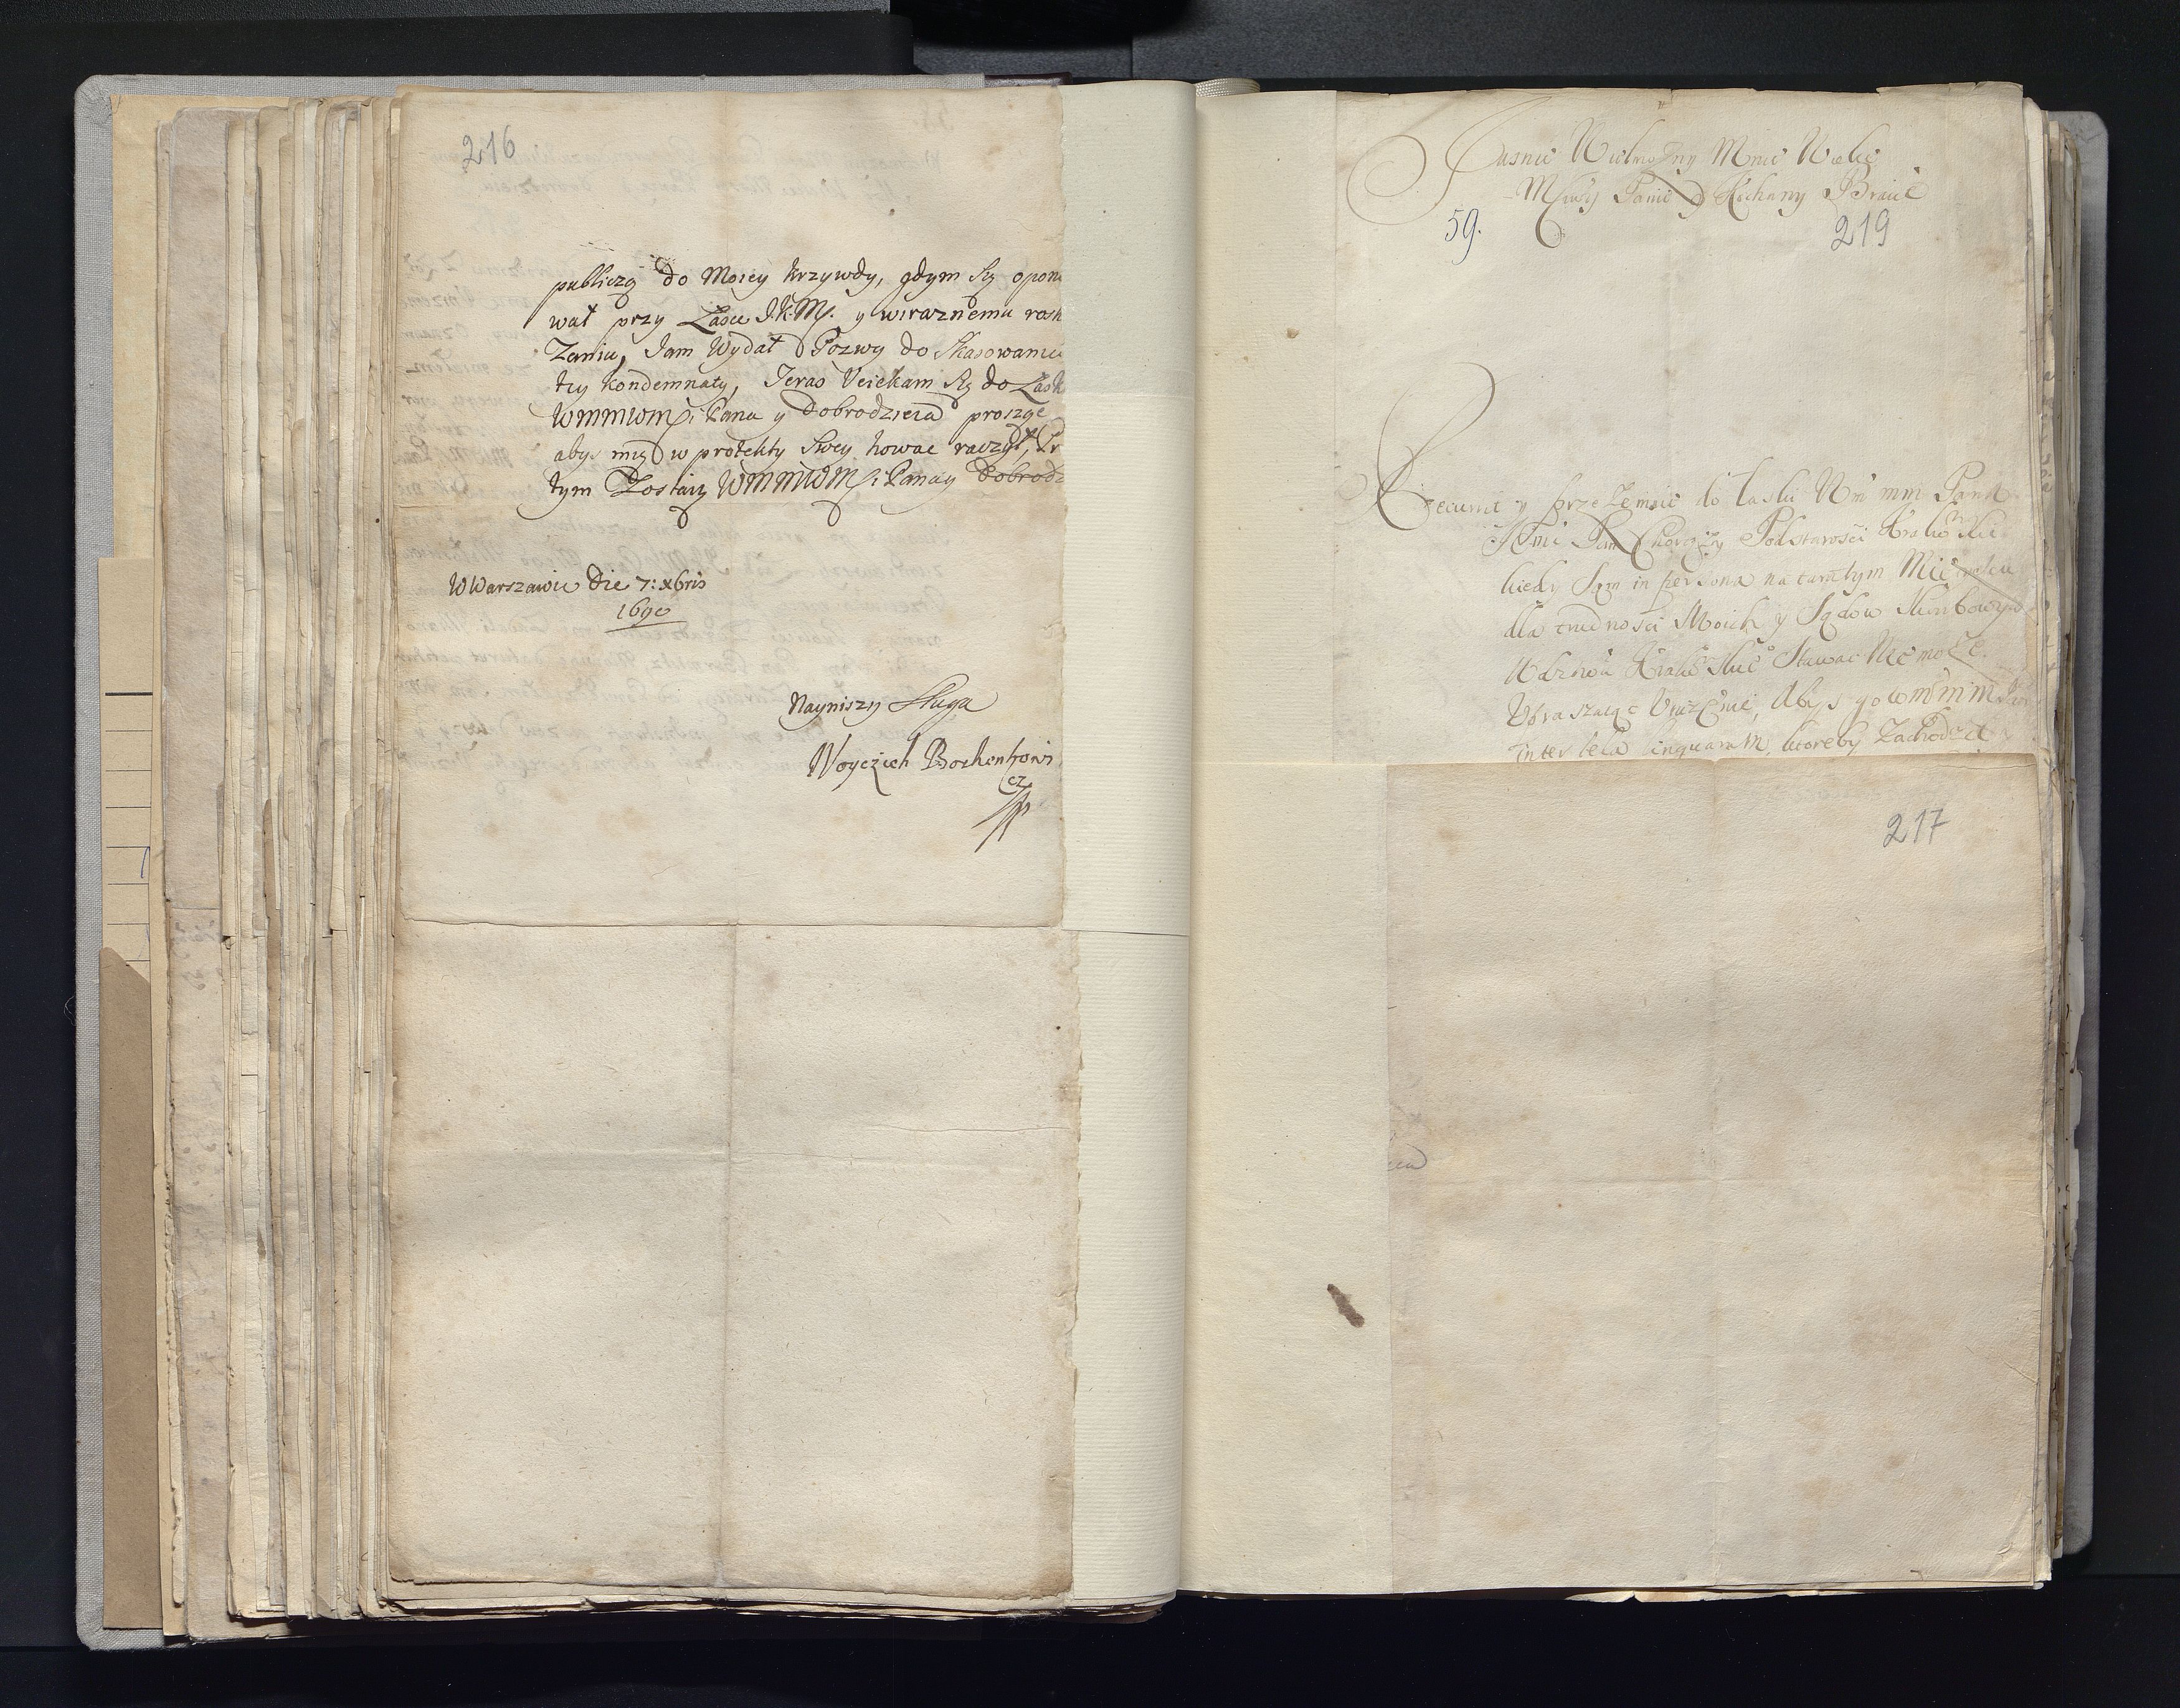 216
publiczą do Moiey krzywdy, gdym Sią opon
wał przy Lasce J.K.M. y wiraznemu rosk
Zaniu, Jam Wydał Pozwy do Skasowania
tey kondemnaty, Teras Veiekam Sią do Lask
WMMWM Pana y Dobrodzieia prosząc
abys mię w protekty Swey howac raczył,
tym Zostaią WMMWM Pana y Dobrodz
WWarszawie Die 7: xbris
1690
Nayniszy Sługa
Woyczich Bochenkowi
cz
Jasnie Wielmozny Mnie Wielce
Msciwy Panie y Kochany Bracie
59.
219
y przezemnie do Laski Wm mm Pana
Pan Chorązy Podstarosci Krakowski
kiedy Sąm in persona na tamtym Mieyscu
dla trudnosci Moich y Sądow Skarbowych
Stawac Nie moze
Vpraszaiąc Vnizenie, Abys go wmmm
inter tela linguarum, ktoreby Zachodzi
217